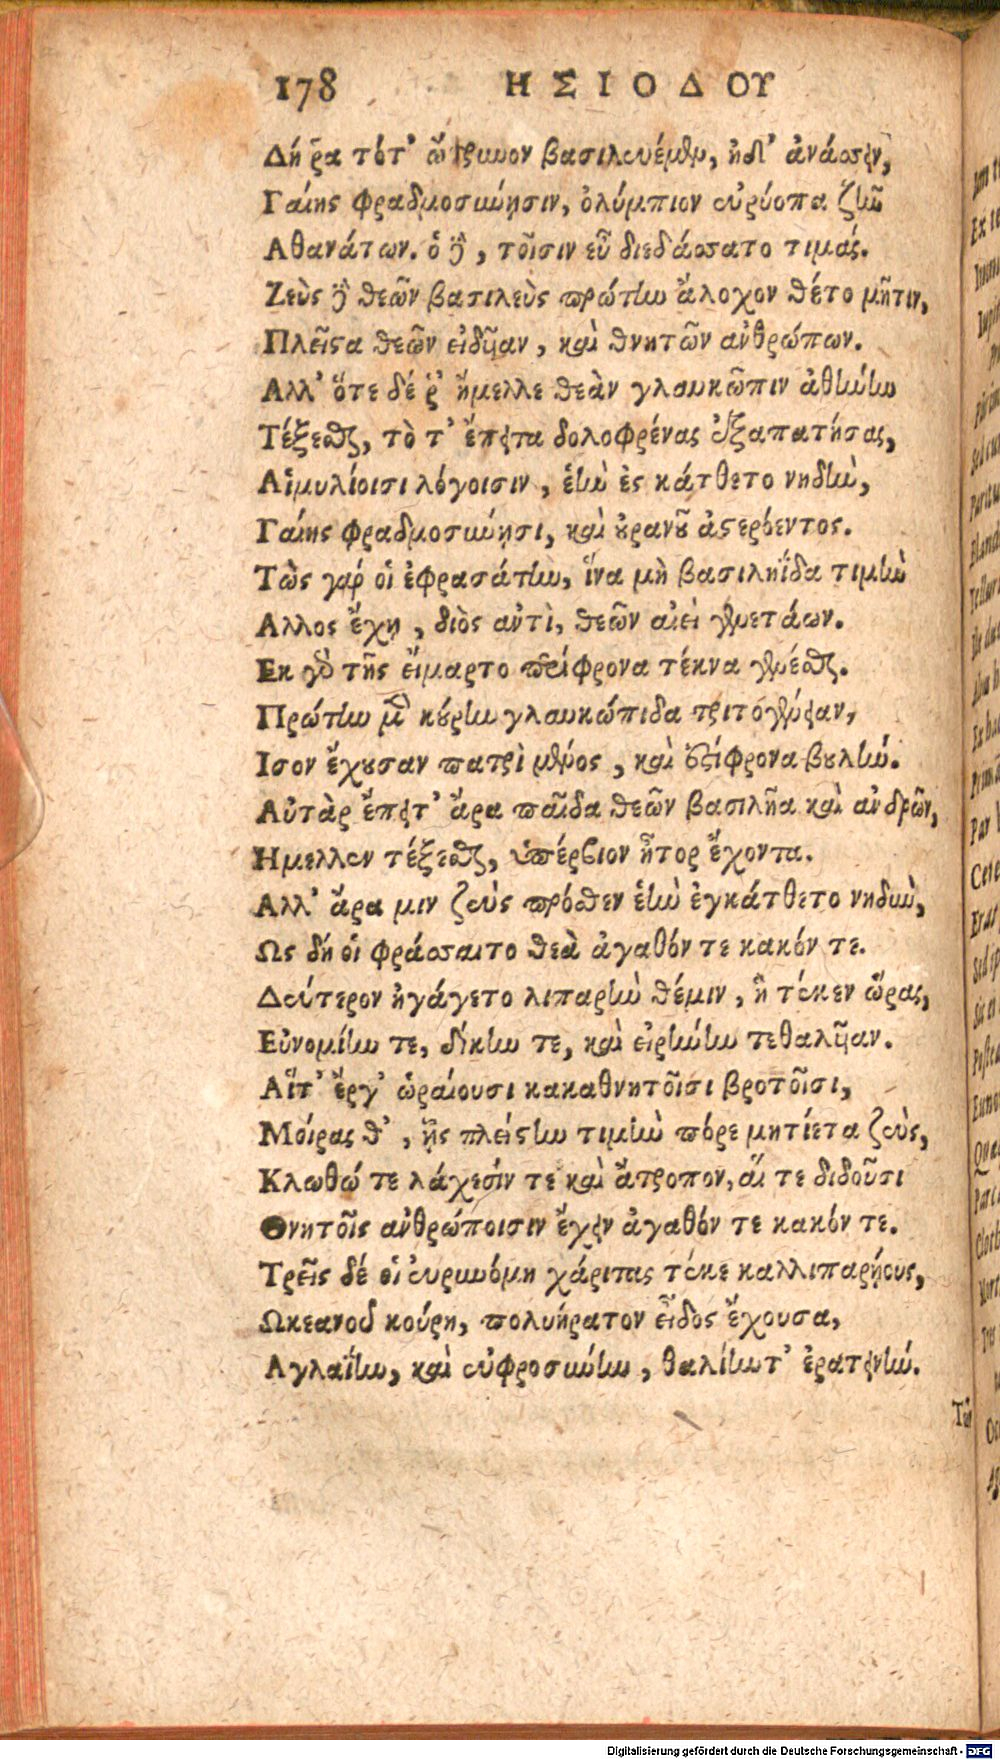 178 ΗΣΙΟΔΟΥ
Δή ῥα τότ' ὤτρυνον βασιλευέμεν, ἠδ' ἀνάσσειν,
Γαίης φραδμοσύνῃσιν, ὀλύμπιον εὐρύοπα ζῆν
Αθανάτων. ὁ δὲ, τοῖσιν εὖ διεδάσσατο τιμάς.
Ζεὺς δὲ θεῶν βατιλεὺς πρώτην ἄλοχον θέτο μῆτιν,
Πλεῖστα θεῶν εἰδυῖαν, καὶ θνητῶν ἀνθρώπων.
Αλλ' ὅτε δέ ῥ' ἤμελλε θεὰν γλαυκῶπιν ἀθήνην
Τέξεσθαι, τὸ τ' ἔπειτα δολοφρένας ἐξαπατήσας,
Αἱμυλίοισι λόγοισιν, ἑὴν ἐς κάτθετο νηδὺν,
Γαίης φραδμοσύνῃσι, καὶ οὐρανοῦ ἀστερόεντος.
Τὼς γάρ οἱ ἐφρασάτην, ἵνα μὴ βασιληΐδα τιμὴν
Αλλος ἔχῃ, διὸς ἀντὶ, θεῶν αἰεὶ γενετάων.
Εκ γὰρ τῆς εἵμαρτο περίφρονα τέκνα γενέσθαι.
Πρώτην μὲν κούρην γλαυκώπιδα τριτόγενειαν,
Ισον ἔχουσαν πατρὶ μένος, καὶ ἐπίφρονα βουλήν.
Αὐτὰρ ἔπειτ' ἄρα παῖδα θεῶν βασιλῆα καὶ ἀνδρῶν,
Ημελλεν τέξεσθαι, ὑπέρβιον ἦτορ ἔχοντα.
Αλλ' ἄρα μιν ζεὺς πρόσθεν ἑὴν ἐγκάτθετο νηδὺν,
Ως δή οἱ φράσσαιτο θεὰ ἀγαθόν τε κακόν τε.
Δεύτερον ἠγάγετο λιπαρὴν θέμιν, ἣ τέκεν ὥρας,
Εὐνομίην τε, δίκην τε, καὶ εἰρήνην τεθαλυῖαν.
Αἵτ' ἔργ' ὡραίουσι κακαθνητοῖσι βροτοῖσι,
Μοίρας θ', ᾗς πλείστην τιμὴν πόρε μητίετα ζεὺς,
Κλωθώ τε λάχεσίν τε καὶ ἄτροπον, αἵ τε διδοῦσι
Θνητοῖς ἀνθρώποισιν ἔχειν ἀγαθόν τε κακόν τε.
Τρεῖς δέ οἱ ἐυρυνόμη χάριτας τέκε καλλιπαρῄους,
Ωκεανοῦ κούρη, πολυήρατον εἶδος ἔχουσα,
Αγλαΐην, καὶ εὐφροσύνην, θαλίην τ' ἐρατεινήν.
Τῶν
Digitalisierung gefördert durch die Deutsche Forschungsgemeinschaft - DFG